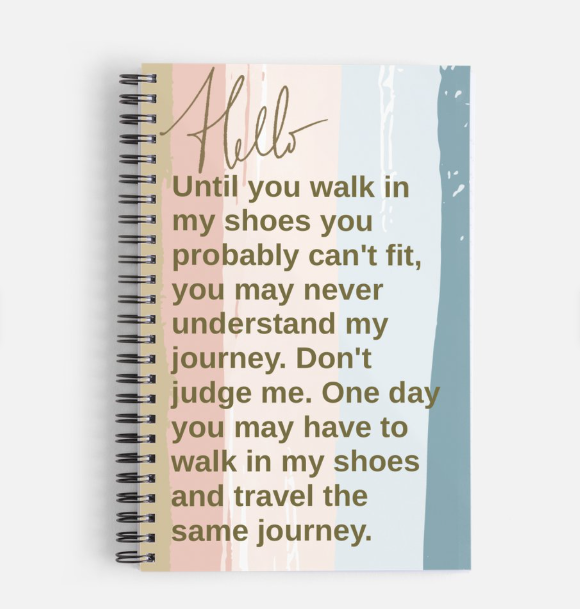 Hello
Until you walk in
my shoes you
probably can't fit,
you may never
understand my
journey. Don't
judge me. One day
you may have to
walk in my shoes
and travel the
same journey.